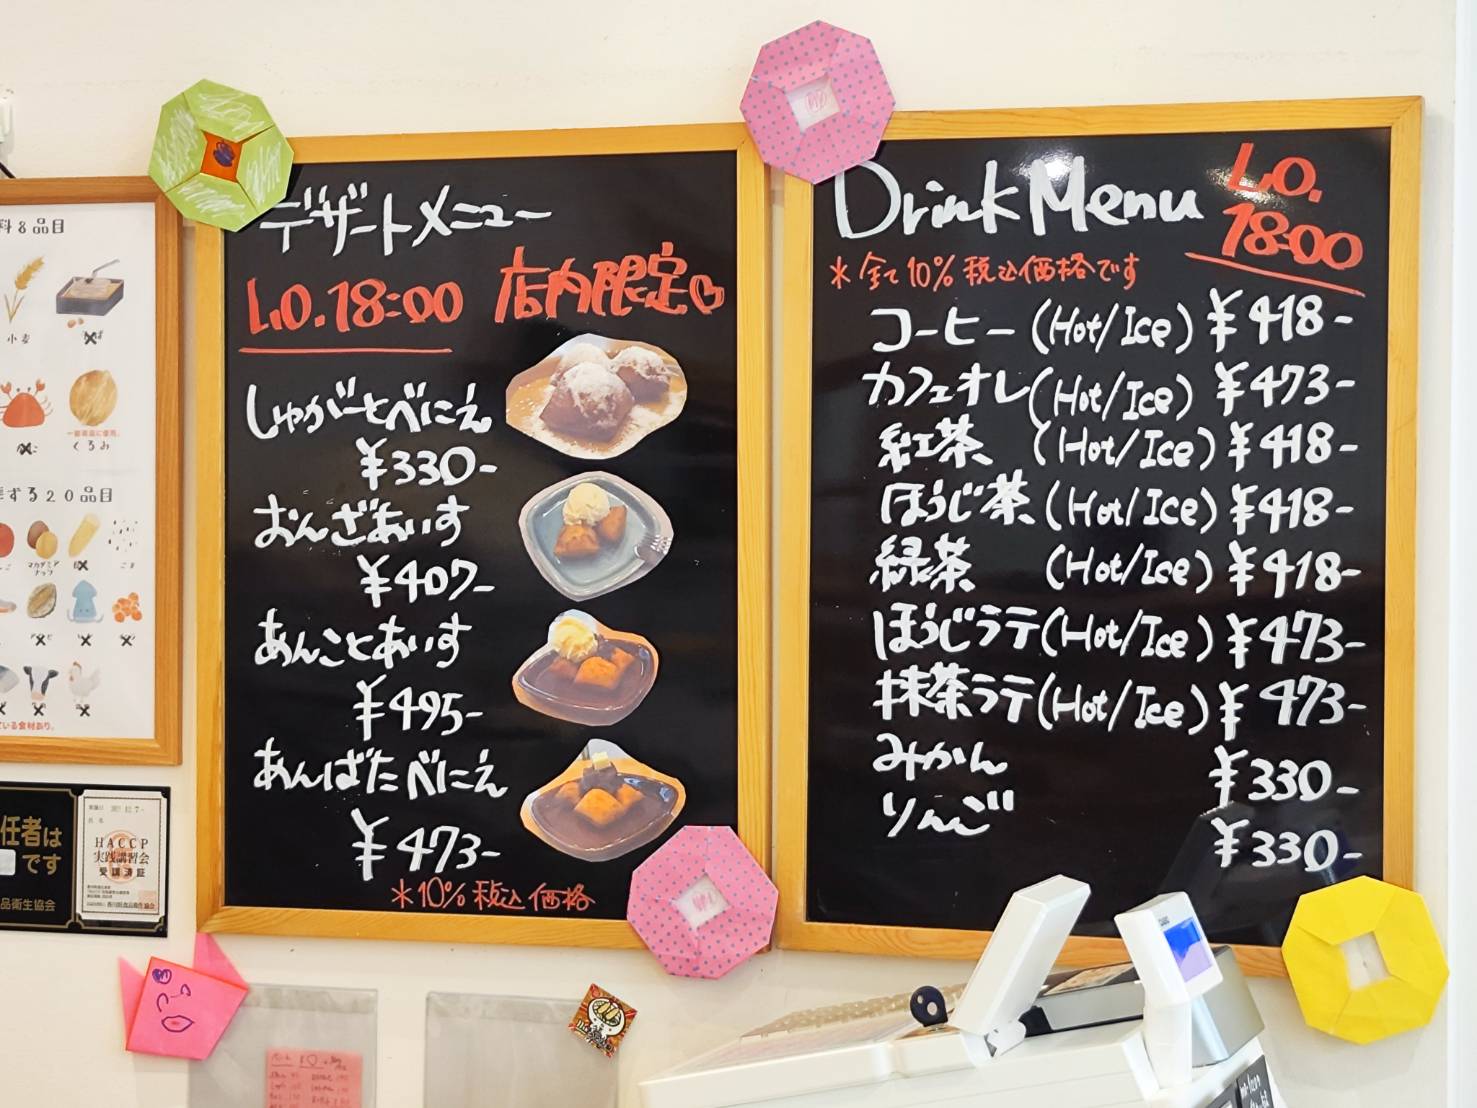 デザートメニュー
L.O.18:00 店内限定♡
しゅがーとべにえ
¥330-
おんざあいす
¥407-
あんことあいす
¥495-
あんばたべにえ
¥473-
*10%税込価格
Drink Menu
L.O.
18:00
*全て10%税込価格です
コーヒー (Hot/Ice) ¥418-
カフェオレ (Hot/Ice) ¥473-
紅茶 (Hot/Ice) ¥418-
ほうじ茶 (Hot/Ice) ¥418-
緑茶 (Hot/Ice) ¥418-
ほうじラテ (Hot/Ice) ¥473-
抹茶ラテ (Hot/Ice) ¥473-
みかん ¥330-
りんご ¥330-
料8品目
小麦
くるみ
ずる20品目
マカダミア
ナッツ
ごま
ている食材あり。
任者は
です
品衛生協会
HACCP
実践講習会
受講済証